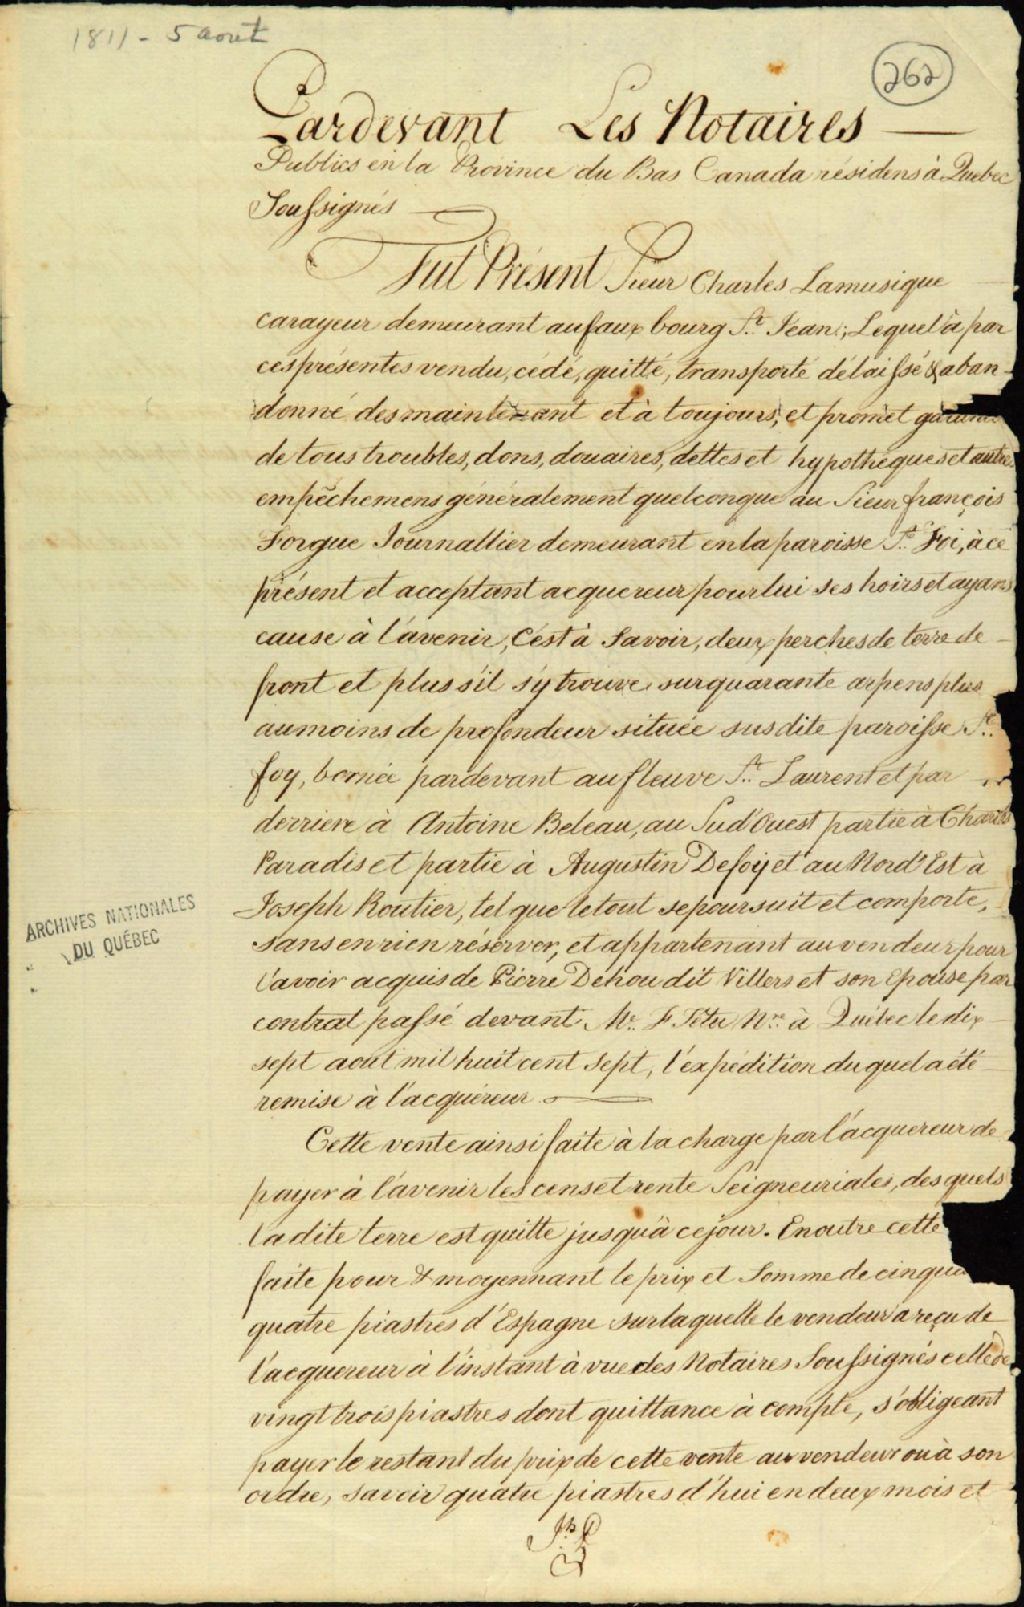 1811 - 5 aout
262
Pardevant Les Notaires
Publics en la Province du Bas Canada résidens à Quebec
Soussignés
Fut Présent Sieur Charles Lamusique
carayeur demeurant au faux bourg St. Jean; Lequel à par
ces présentes vendu, cédé, quitté, transporté délaissé & aban-
donné des maintenant et à toujours, et promet garantir
de tous troubles, dons, douaires, dettes et hypothèques et autres
empêchemens généralement quelconque au Sieur françois
Forgue Journallier demeurant en la paroisse Ste. Foi, à ce
présent et acceptant acquereur pour lui ses hoirs et ayans
cause à l'avenir, C'ést à Savoir, deux perches de terre de
front et plus s'il s'y trouve sur quarante arpens plus
au moins de profondeur située susdite paroisse Ste.
foy, bornée pardevant au fleuve St. Laurent et par
derriere à Antoine Beleau, au Sud'Ouest partie à Charles
Paradis et partie à Augustin Defoy et au Nord'Est à
Joseph Routier, tel que le tout se poursuit et comporte,
sans en rien réserver, et appartenant au vendeur pour
l'avoir acquis de Pierre Dehou dit Villers et son Epouse par
contrat passé devant Me. F Tétu Nre. à Québec le dix
sept aout mil huit cent sept, l'expédition du quel a été
remise à l'acquéreur
Cette vente ainsi faite à la charge par l'acquereur de
payer à l'avenir les cens et rente Seigneuriales, des quels
la dite terre est quitte jusqu'à ce jour. En outre cette
faite pour & moyennant le prix et Somme de cinqua
quatre piastres d'Espagne sur laquelle le vendeur a reçu de
l'acquereur à l'instant à vue des Notaires Soussignés celle de
vingt trois piastres dont quittance à compte, s'obligeant
payer le restant du prix de cette vente au vendeur ou à son
ordre, savoir quatre piastres d'hui en deux mois et
ARCHIVES NATIONALES
DU QUÉBEC